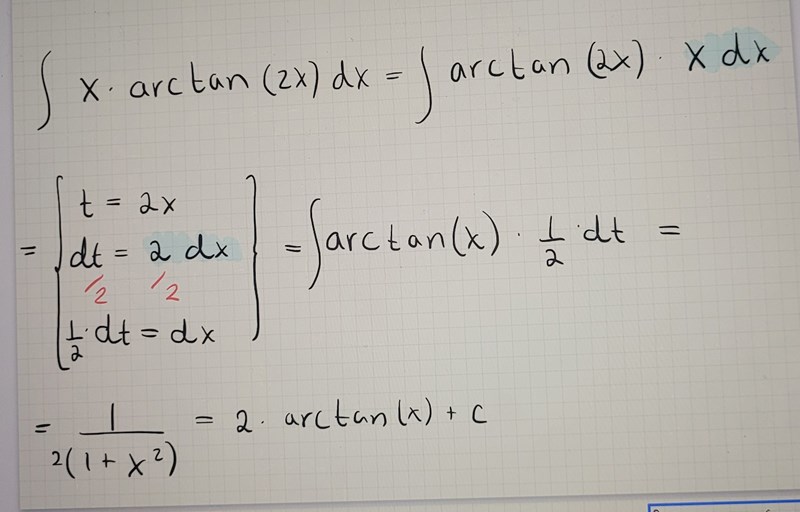 ∫ x · arctan (2x) dx = ∫ arctan (2x) · x dx
= [ t = 2x
dt = 2 dx
/2 /2
1/2 · dt = dx ] = ∫ arctan(x) · 1/2 · dt =
= 1/2(1 + x²) = 2 · arctan(x) + c